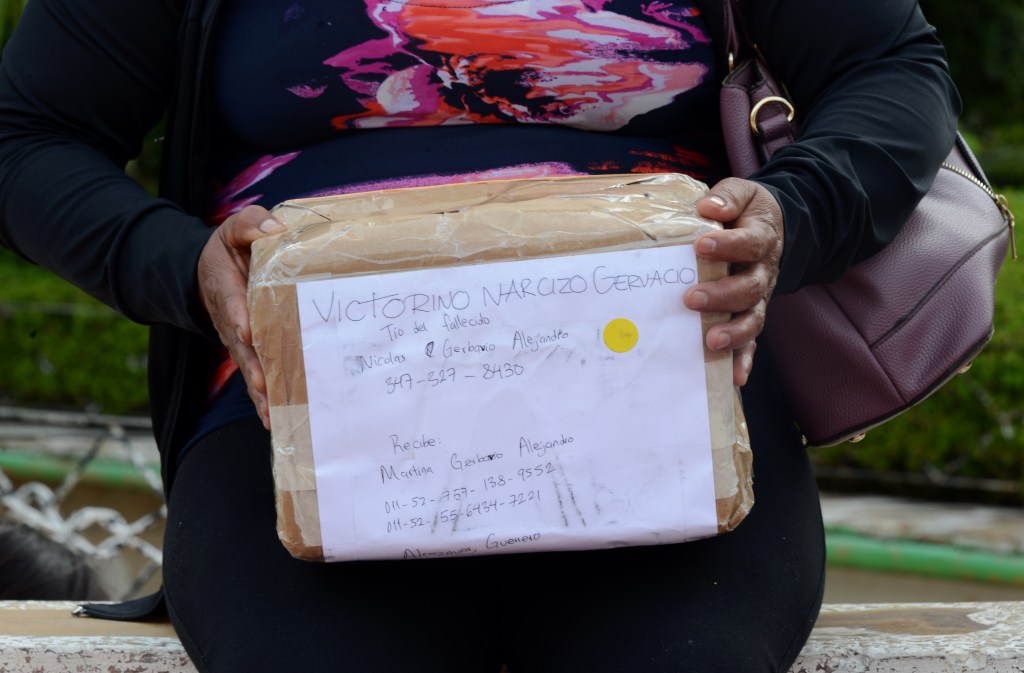 VICTORINO NARCIZO GERVACIO
Tio del fallecido
Nicolas Gerbacio Alejandro
347-327-8430
Recibe:
Martina Gerbacio Alejandro
011-52-757-138-9552
011-52-55-6434-7221
Guerrero